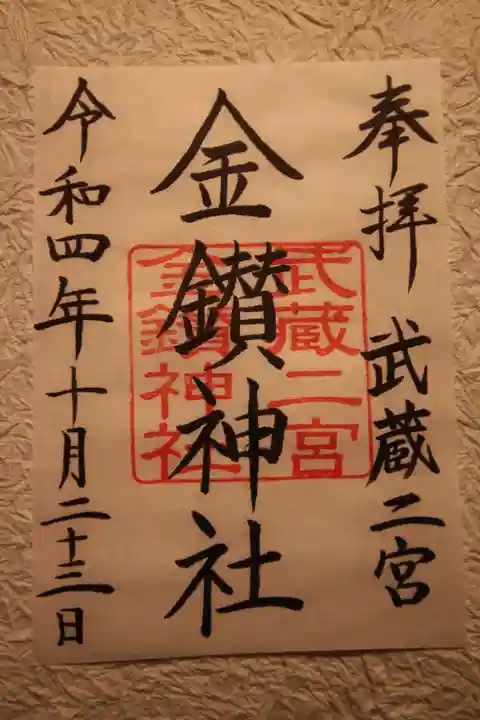 奉拝 武蔵二宮
金鑚神社
武蔵二宮
金鑚神社
令和四年十月二十三日